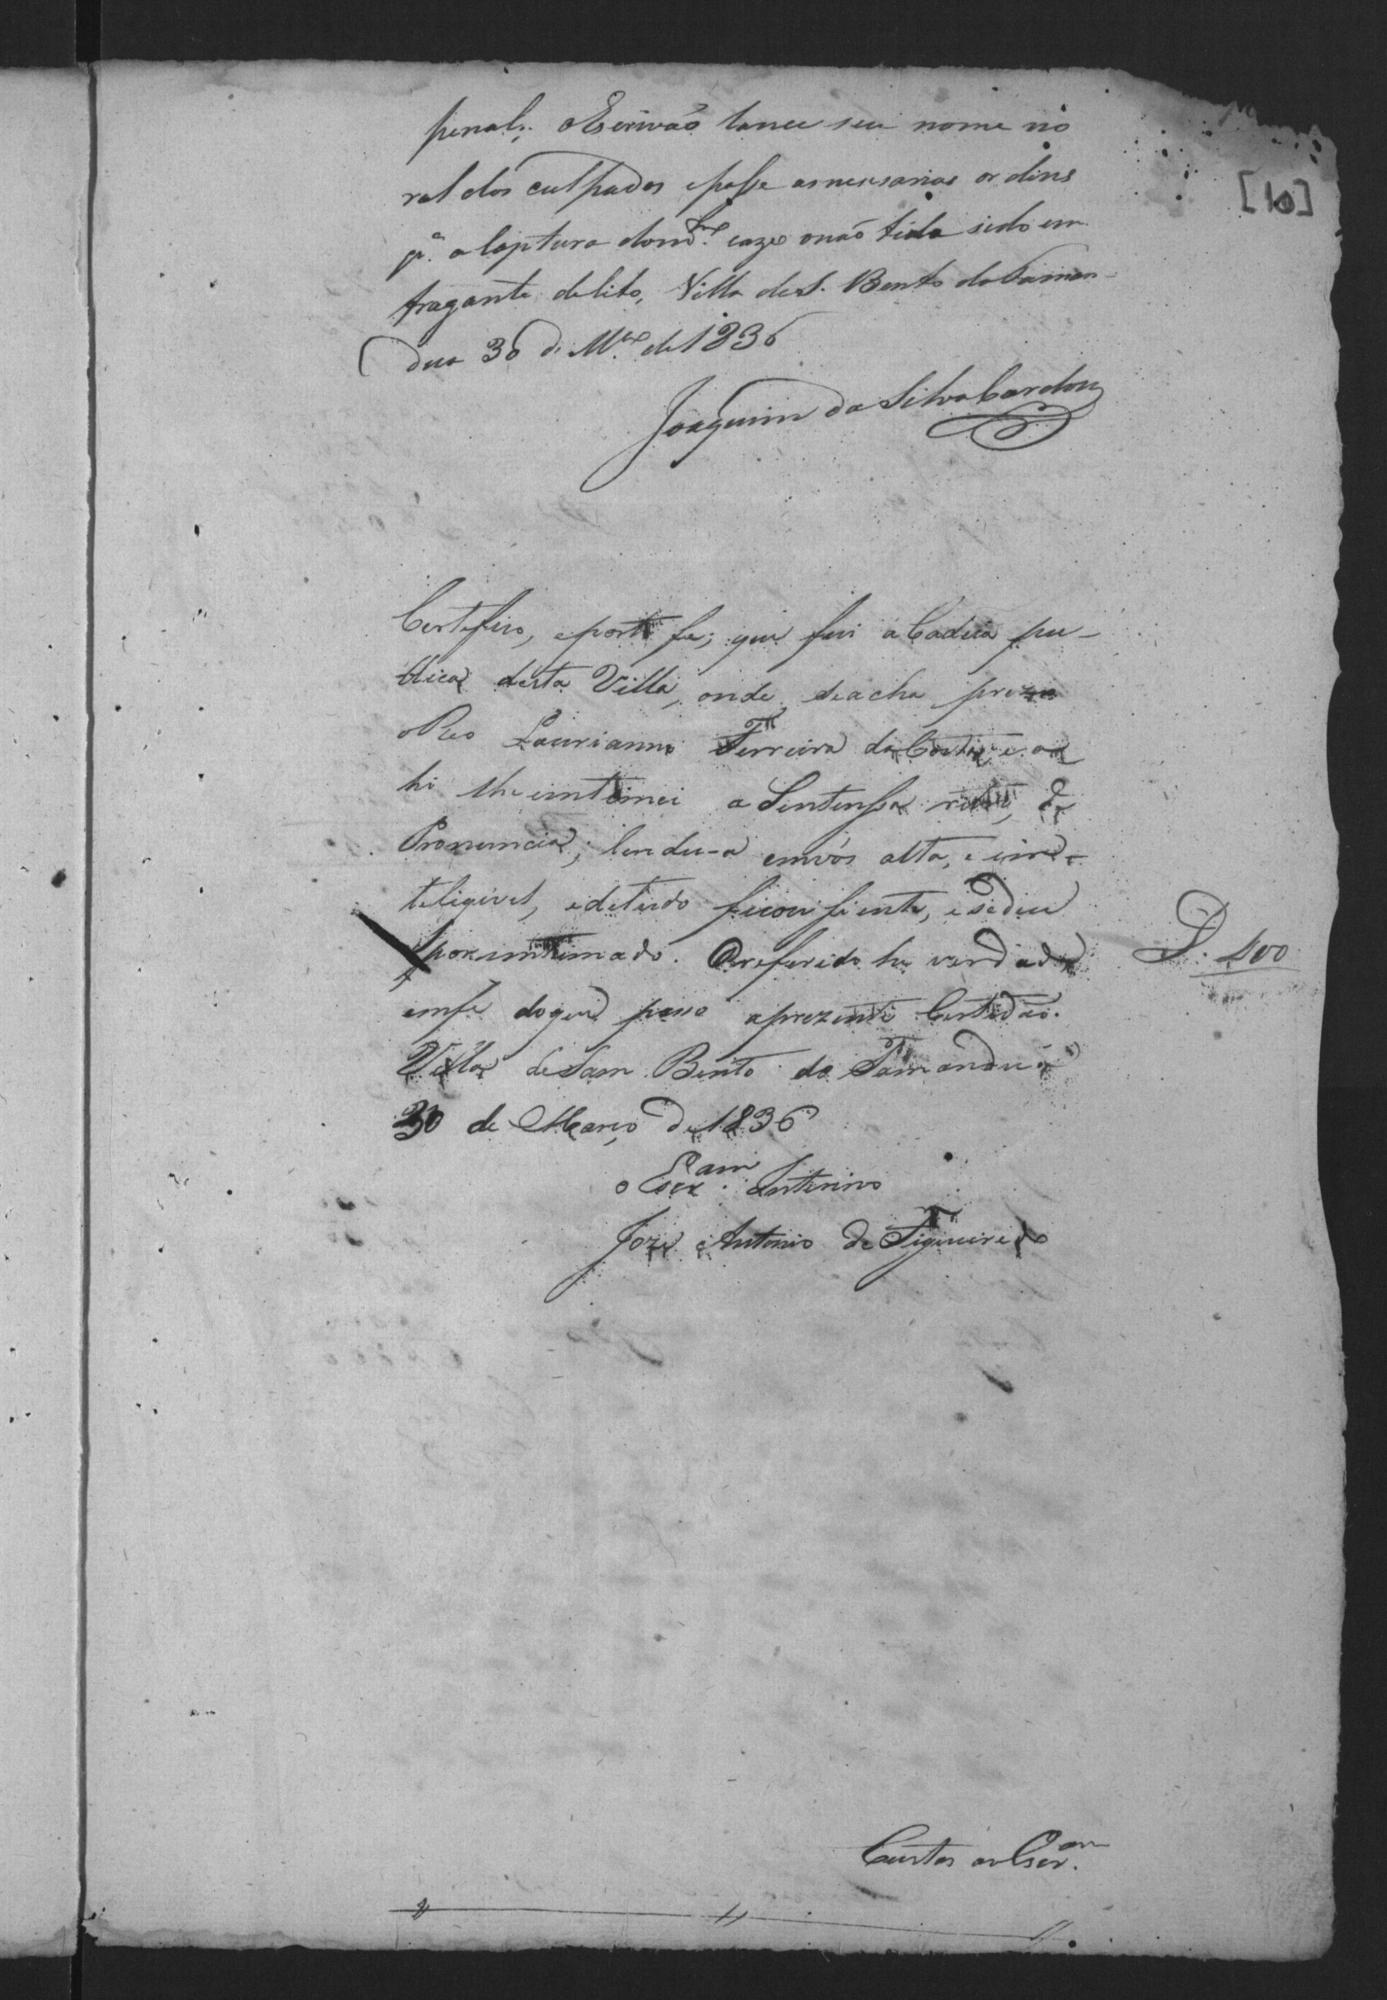 penal, o Escrivaõ lance seu nome no
rol dos culpados epasse asnersarias ordens
[10]
pª. a Captura dom.mo cazo onaõ tida sido em
fragante delito, Villa de S. Bento do Taman-
dua 30 de M.ço de 1836
Joaquim da Silva Cardozo
Certefico, eporto fe; que fui a Cadeia pu-
blica desta Villa, onde seacha prezo
o Reo Laurianno Ferreira da Costa, e a
hi lhe intimei a Sentenssa de
Pronuncia, lendo-a emvós alta, e in-
teligivel, edetudo ficou siente, e sedeu
porintimado. Oreferido he verdade
emfe doque paso aprezente Certidaõ.
D. 400
Villa de Sam Bento do Tamanduá
30 de Março de 1836
o Escr.am Interino
Joze Antonio de Figueiredo
Custas ao Escr.am